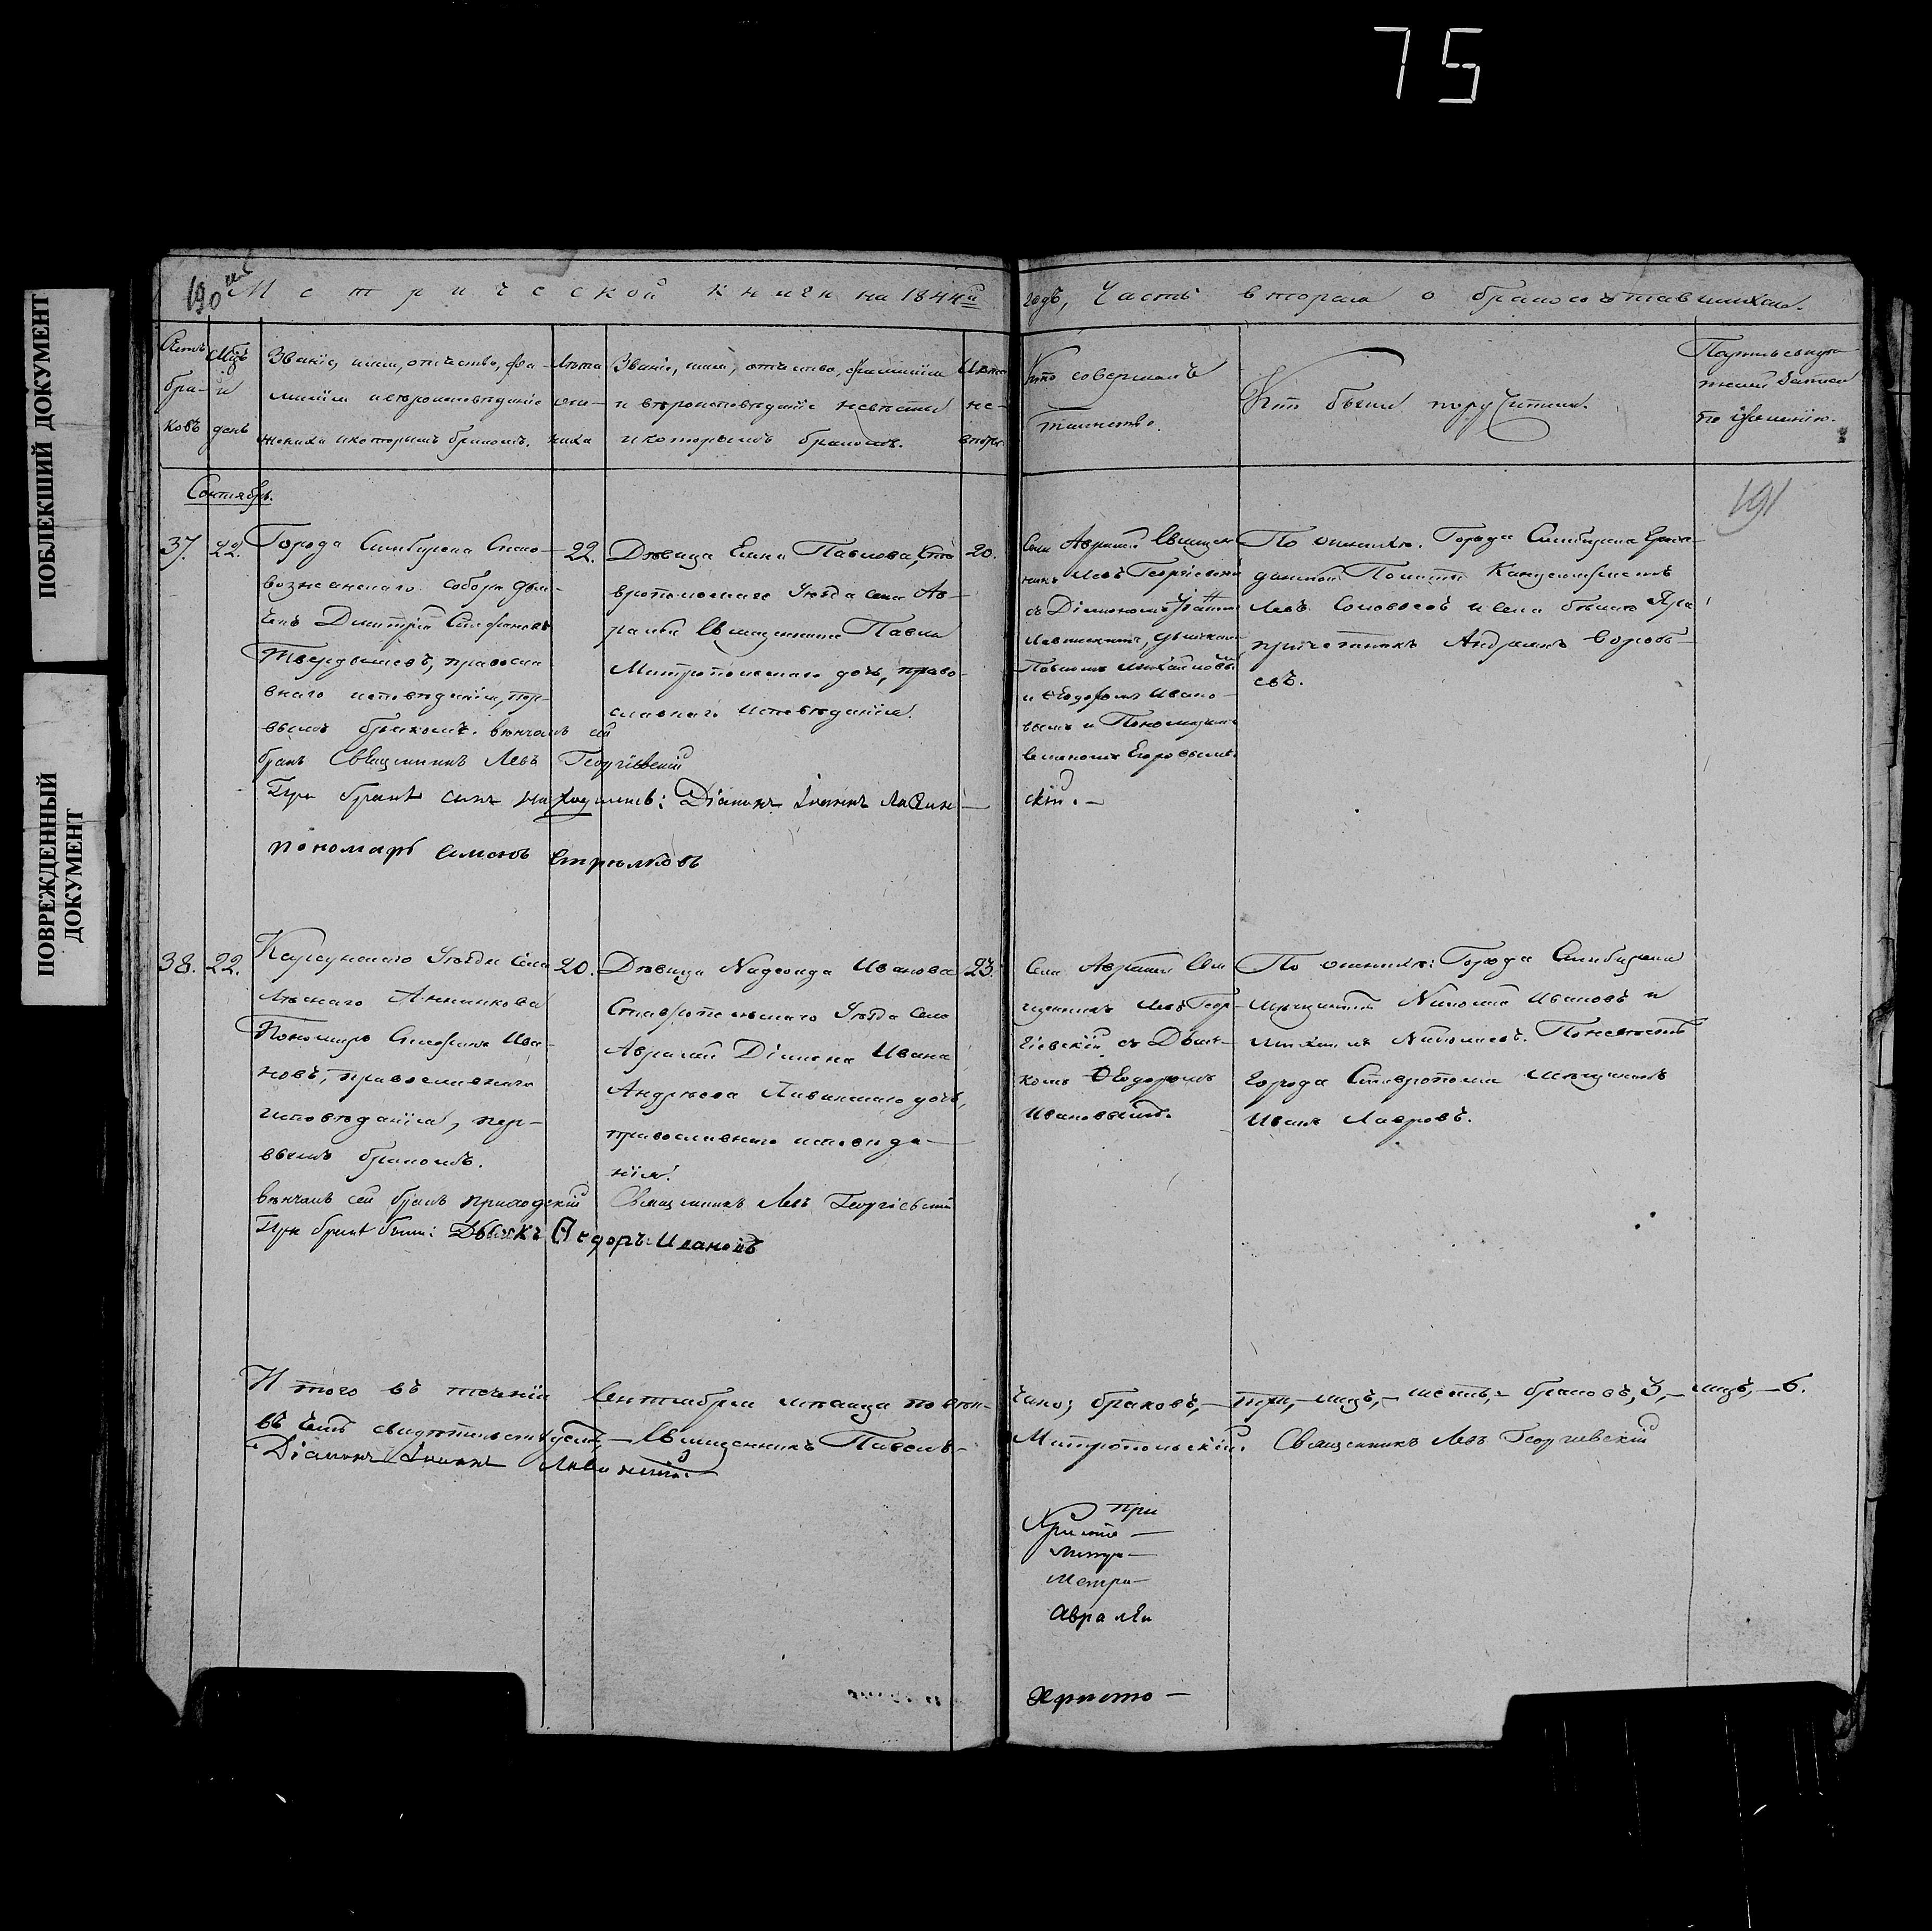 75
ПОБЛЕКШИЙ ДОКУМЕНТ
ПОВРЕЖДЕННЫЙ
ДОКУМЕНТ
190
Метрической книги на 1844й
годъ, Часть вторая о бракосочетавшихся.
Счетъ
бра-
ковъ
Мцъ
и
день
Званіе, имя, отчество, фа-
милія и вѣроисповѣданіе
жениха и которымъ бракомъ.
Лѣта
же-
ниха
Званіе, имя, отчество, фамилія
и вѣроисповѣданіе невѣсты
и которымъ бракомъ.
Лѣта
не-
вѣсты
Кто совершалъ
таинство.
Кто были поручители.
по желанію.
191
Сентябрь.
37.
22.
Города Симбирска Спасо-
вознесенскаго собора дья-
чекъ Димитрій Стефановъ
Твердышевъ, правосла-
внаго исповѣданія, пер-
вымъ бракомъ. вѣнчалъ сей
бракъ Священникъ Левъ Георгіевскій
При бракѣ семъ находились: Діаконъ Іоаннъ Лавин-
скій.-
пономарь Симеонъ Стрѣлковъ
22.
Дѣвица Елена Павлова, Ста
вропольскаго Уѣзда села Ав-
ралей Священника Павла
Митропольскаго дочь, право-
славнаго исповѣданія.
20.
Села Авралей Священ
никъ Левъ Георгіевскій
съ Діакономъ Іоанномъ
Лавинскимъ, дьячкомъ
Павломъ Михайловымъ
и Ѳеодоромъ Ивано-
вымъ и Пономаремъ
По женихѣ. Города Симбирска Граж-
данской Палаты Канцеляристъ
Левъ Соловьевъ и села
причетникъ Андреянъ Воробь-
евъ.
38.
22.
Карсунскаго Уѣзда села
Лѣснаго Аннинкова
Пономарь Стефанъ Ива-
новъ, православнаго
исповѣданія, пер-
вымъ бракомъ.
вѣнчалъ сей бракъ приходскій Священникъ Левъ Георгіевскій
При бракѣ были: Дьячекъ Ѳедоръ Ивановъ
20.
Дѣвица Надежда Иванова
Ставропольскаго Уѣзда Села
Авралей Діакона Ивана
Андреева Лавинскаго дочь,
православнаго исповѣда-
нія.
23.
Села Авралей Свя
щенникъ Левъ Геор-
гіевскій съ Дьяч-
комъ Ѳеодоромъ
Ивановымъ.
По женихѣ: Города Симбирска
мѣщанинъ Николай Ивановъ и
По невѣстѣ
города Ставрополя мѣщанинъ
Иванъ Лавровъ.
И того въ теченіи Сентября мѣсяца повѣн-
чано; браковъ, три, лицъ, шесть, браковъ, 3, лицъ, 6.
въ чемъ свидѣтельствуемъ, Священникъ Павелъ
Митропольскій. Священникъ Левъ Георгіевскій
Діаконъ Іоаннъ Лавинскій.
при
Христо-
Метри-
Авралѣи
Христо-